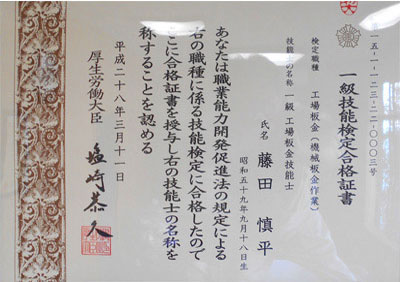 一級技能検定合格証書
検定職種　工場板金（機械板金作業）
技能士の名称　一級工場板金技能士
氏名　藤田慎平
昭和五十九年九月十八日生
あなたは職業能力開発促進法の規定による
右の職種に係る技能検定に合格したので
ここに合格証書を授与し右の技能士の名称を
称することを認める
平成二十八年三月十一日
厚生労働大臣　塩崎恭久